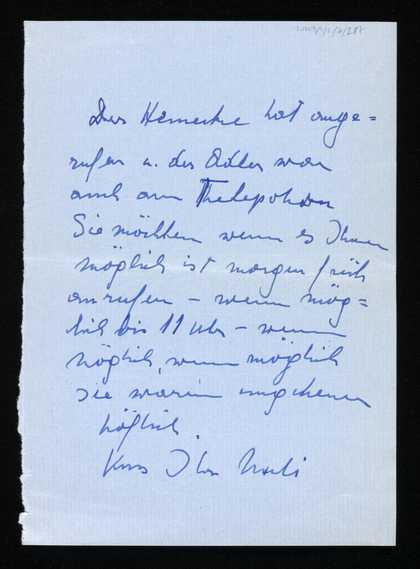 Der Heinecke hat ange=
rufen u. der Adler war
auch am Thelephohn
Sie möchten wenn es Ihnen
möglich ist morgen früh
anrufen – wenn mög=
lich bis 11 Uhr – wenn
möglich, wenn möglich
sie waren ungeheuer
höflich.
Kuss Ihr